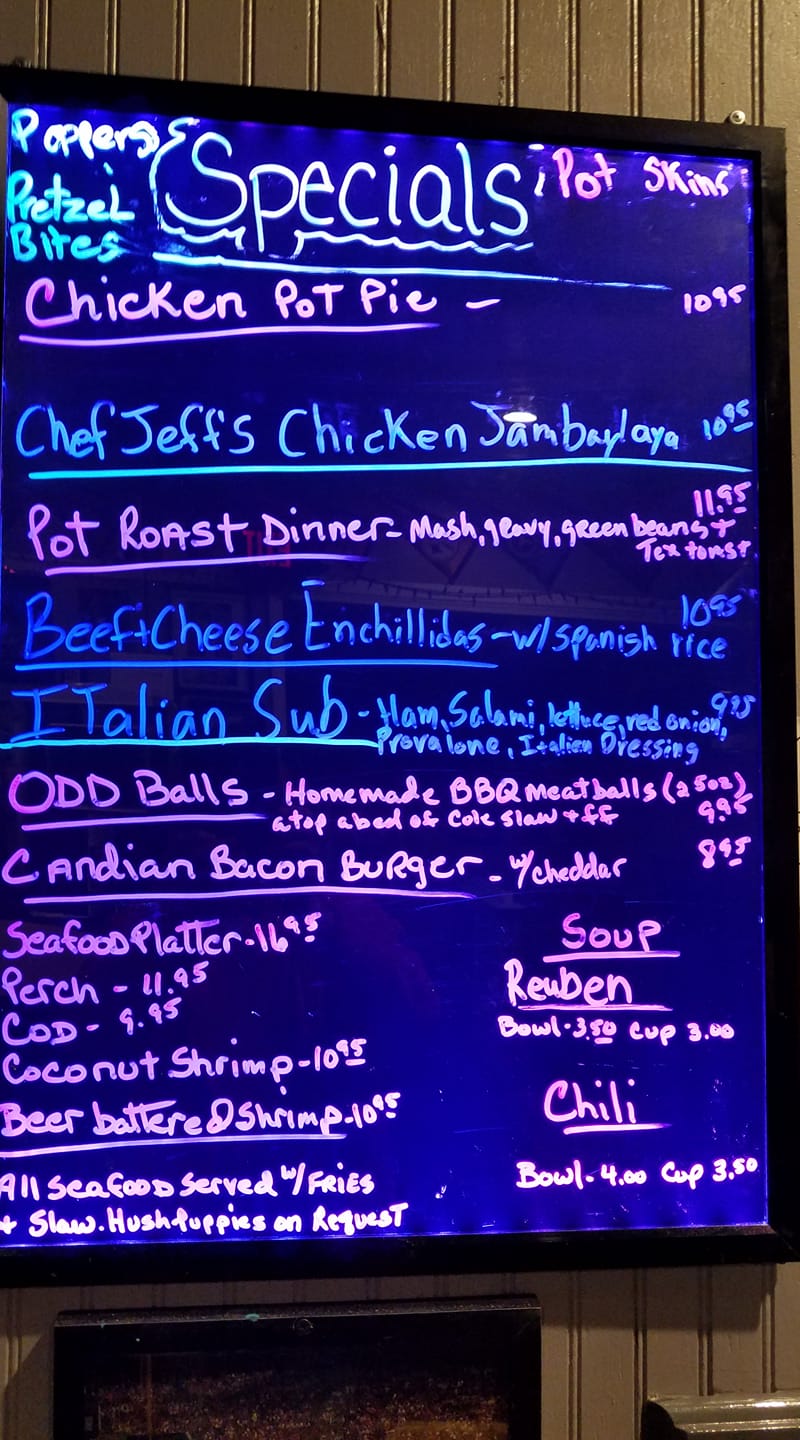 Poppers
Pretzel
Bites
Specials
Pot Skins
Chicken Pot Pie - 10.95
Chef Jeff's Chicken Jambaylaya 10.95
11.95
Pot Roast Dinner - Mash, gravy, green beans +
Tex toast
10.95
Beef + Cheese Enchillidas - w/ spanish rice
Italian Sub - Ham, Salami, lettuce, red onion, 9.95
Provalone, Italien Dressing
ODD Balls - Homemade BBQ meatballs (2 5oz)
atop a bed of Cole Slaw + ff 9.95
Candian Bacon Burger - w/ cheddar 8.95
Seafood Platter - 16.95
Perch - 11.95
Cod - 9.95
Coconut Shrimp - 10.95
Beer battered Shrimp - 10.95
All Seafood Served w/ Fries
+ Slaw. Hushpuppies on Request
Soup
Reuben
Bowl - 3.50 Cup 3.00
Chili
Bowl - 4.00 Cup 3.50